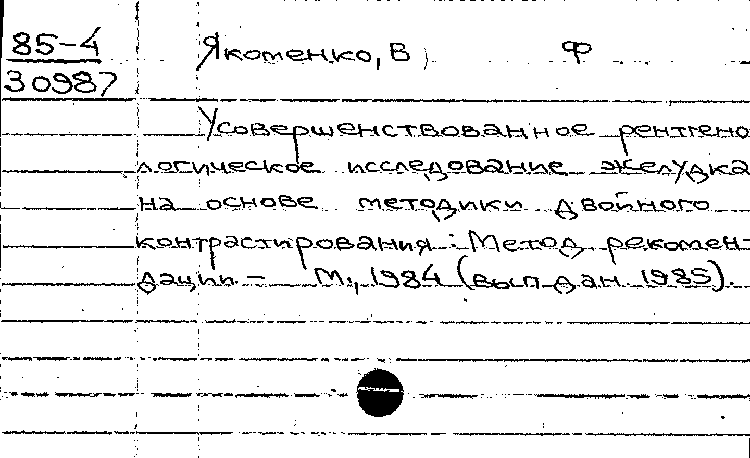 85-4 Якоменко, В Ф
30987
Усовершенствованное рентгено
логическое исследование желудка
на основе методики двойного
контрастирования: Метод. рекомен-
дации. – М., 1984 (вып дан 1985).